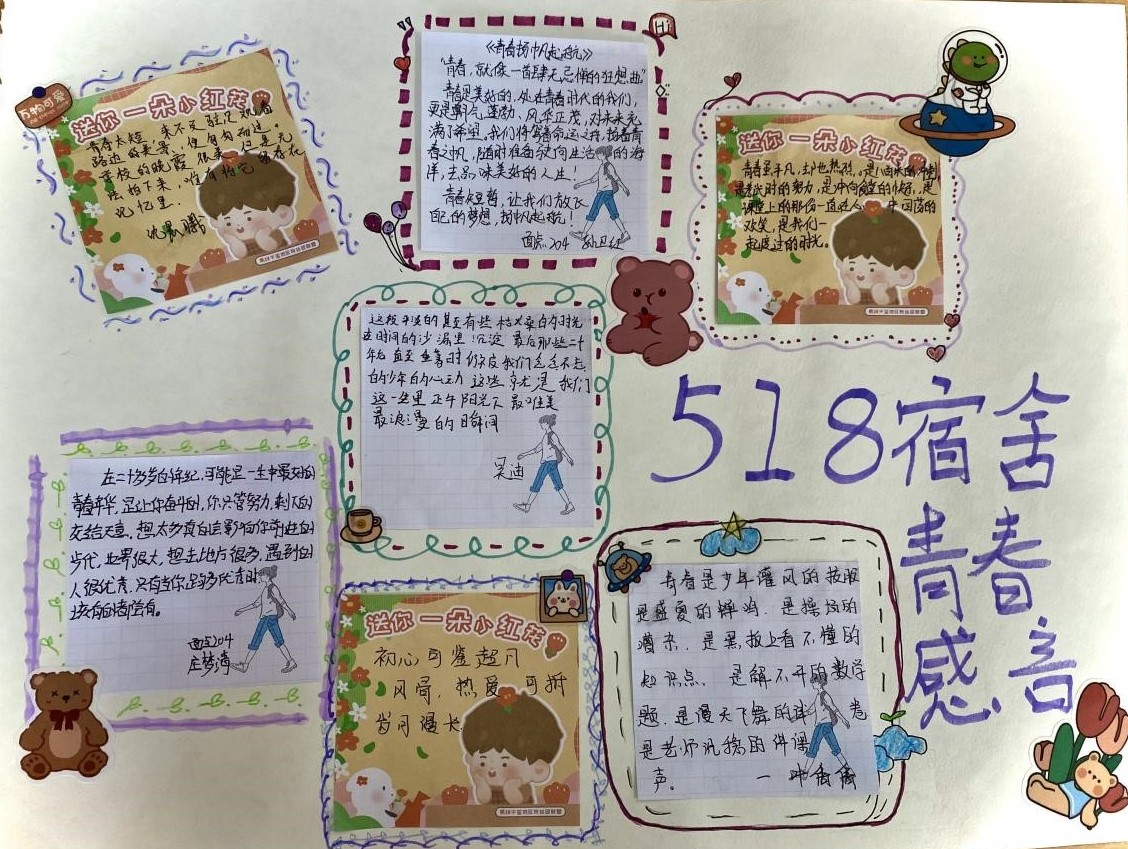 万物可爱
送你一朵小红花
青春太短,来不及驻足观看
路边的美景,但匆匆而过。
学校的晚霞很美,但是无
法拍下来,唯有将它留存在
记忆里.
《青春扬帆起航》
"青春,就像一首肆无忌惮的狂想曲"
青春是美好的,处在青春时代的我们,
更是朝气蓬勃、风华正茂,对未来充
满了希望。我们将驾着命运之我,扬着青
春之帆,随时准备驶向生活的海
洋,去品味美好的人生!
青春短暂,让我们放长
自己的梦想,扬帆起航!
204 孙卫红
Hi
送你一朵小红花
青春虽平凡,却也热烈,是
考试时的努力,是冲向食堂的
课堂上的那份一直
欢笑,是我们一
起度过的时光。
这段平淡的甚至有些枯燥的时光
在时间的沙漏里沉淀 最后那些二十
年后 甚至垂暮时仍
的少年的心动 这些就是我们
这一生里 正午阳光下 最唯美
最浪漫的瞬间
吴迪
518宿舍
青春
感音
在二十多岁的年纪,可能是一生中最好的
青春年华,是让你奋斗的,你只管努力,剩下的
交给天意。想太多真的会影响你前进的
步伐,世界很大,想去地方很多,遇到的
人很优秀,只有当你足够优秀时
该有的都会有。
204
庄梦涛
送你一朵小红花
初心可鉴超凡
风骨,热爱可抵
岁月漫长
青春是少年灌风的校服
是盛夏的蝉鸣.是操场的
嘈杂.是黑板上看不懂的
知识点.是解不开的数学
题.是漫天飞舞的试卷
是老师讲授的讲课
声。